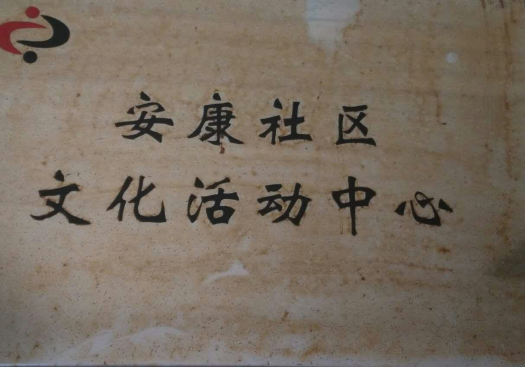 安康社区
文化活动中心